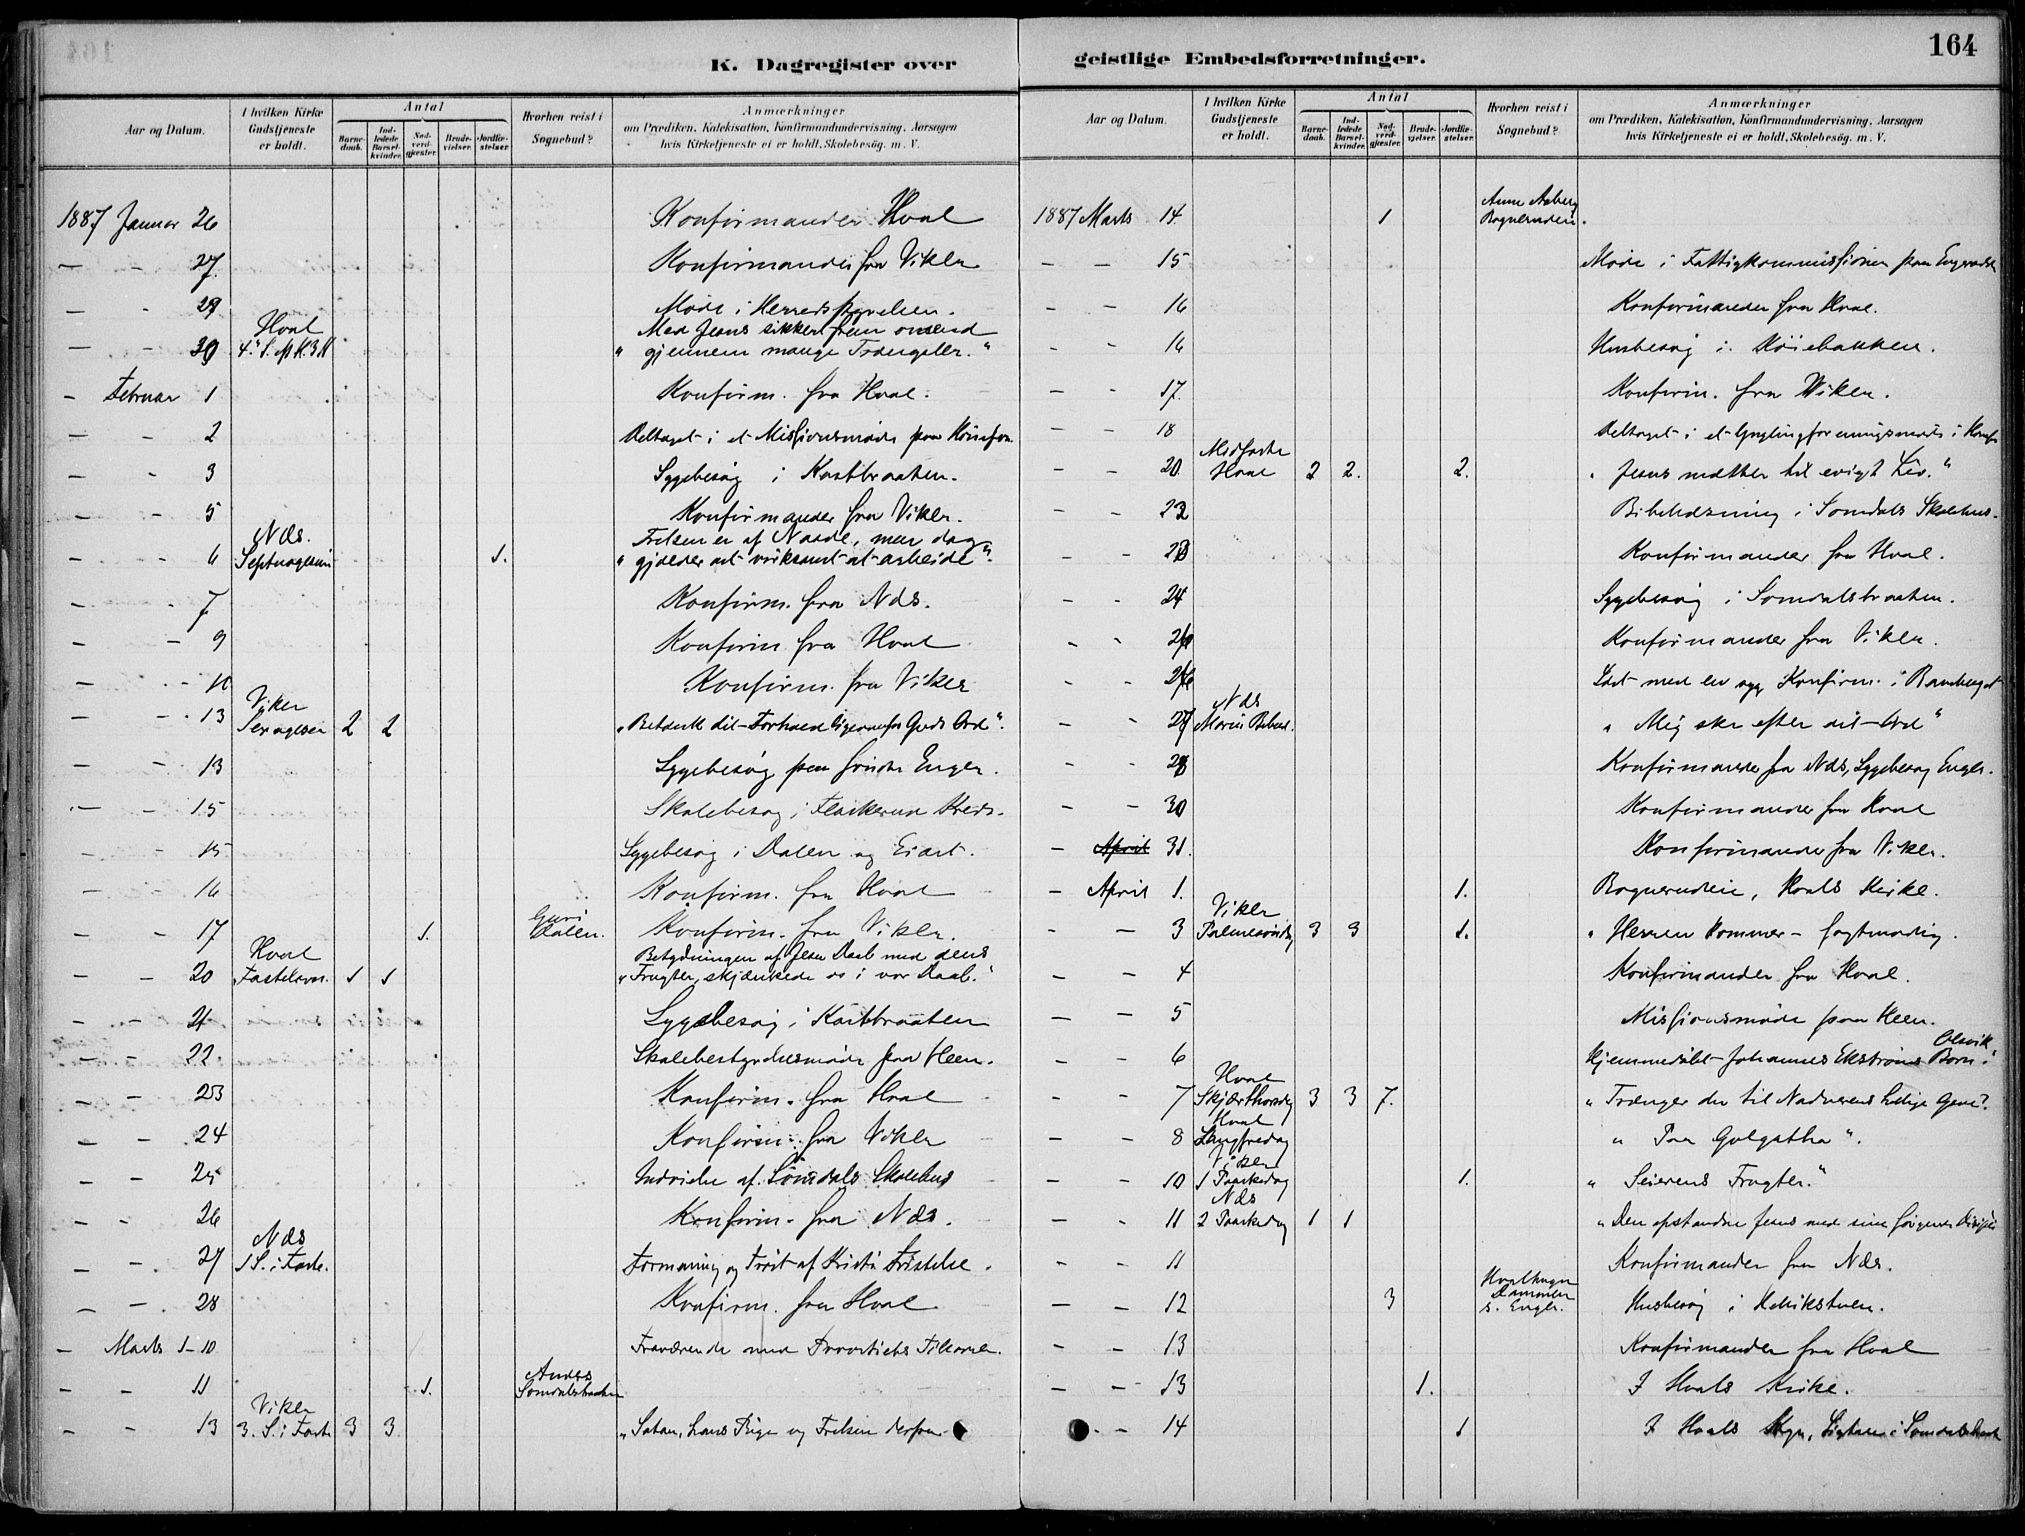 164
K. Dagregister over geistlige Embedsforretninger.
Aar og Datum.
I hvilken Kirke Gudstjeneste er holdt.
Antal
Barne-daab.
Ind-ledede Barsel-kvinder.
Nad-verd-gjæster.
Brude-vielser.
Jordfæ-stelser.
Hvorhen reist i Sognebud?
Anmærkninger
om Prædiken, Katekisation, Konfirmandundervisning, Aarsagen
hvis Kirketjeneste ei er holdt, Skolebesøg. m. V.
1887 Januar 26 Konfirmander Hval
— - 27. Konfirmander fra Viker
— - 29 Møde i Herredsstyrelsen.
Hval Med Jesus sikkert frem omend
— - 30 4. S. " gjennem mange Trængsler. "
— Februar 1 Konfirm. fra Hval.
— - 2 Deltaget i et Missionsmøde paa
— - 3 Sygebesøg i Kastbraaten.
— - 5 Konfirmander fra Viker.
Næs. Frelsen er af Naade, men dog
— - 6 Septuagesim 1. " gjælder det virksomt at arbeide".
— - 7 Konfirm. fra Næs.
— - 9 Konfirm fra Hval
— - 10 Konfirm. fra Viker
Viker
— - 13 Sexagesim 2 2 "Betænk dit Forhold ligeoverfor Guds Ord".
— - 13 Sygebesøg paa søndre Enger.
— - 15 Skolebesøg i Kreds.
— - 15 Sygebesøg i Dalen og
— - 16 Konfirm. fra Hval
— - 17 1. Guri Dalen. Konfirm. fra Viker.
Hval Betydningen af Jesu Daab med dens
— - 20 Fastelavn. 1 1 " Frugter, skjænkede os i vor Daab."
— - 21 Sygebesøg i Kastbraaten
— - 22 Skolebestyrelsesmøde paa Heen.
— - 23 Konfirm. fra Hval
— - 24 Konfirm. fra Viker
— - 25 Indvielse af Somdals Skolehus
— - 26 Konfirm. fra Næs.
Næs
— - 27 1 S. i Faste. Formaning og Trøst af Kristi Fristelse.
— - 28 Konfirm. fra Hval
— Marts 1-10 Fraværende med Provstiets Tilladelse.
— - 11 1. Anders Somdalsbraaten
Viker
— - 13 3. S. i Faste 3 3 " Satan, hans Rige og Frelsen derfra.
Aar og Datum.
I hvilken Kirke Gudstjeneste er holdt.
Antal
Barne-daab.
Ind-ledede Barsel-kvinder.
Nad-verd-gjæster.
Brude-vielser.
Jordfæ-stelser.
Hvorhen reist i Sognebud?
Anmærkninger
om Prædiken, Katekisation, Konfirmandundervisning, Aarsagen
hvis Kirketjeneste ei er holdt, Skolebesøg. m. V.
1887 Marts 14. 1 Anne Aaberg Bognerudeie.
— — 15 Møde i Fattigkommissionen paa
— — 16 Konfirmander fra Hval.
- - 16 Husbesøg i Høiebakken.
— - 17. Konfirm. fra Viker.
— — 18 Deltaget i et Ynglingforeningsmøde i
Midfaste
— — 20 Hval 2 2. 2. " Jesus mætter til evigt Liv. "
— - 22 Bibellæsning i Somdals Skolehus.
— - 23 Konfirmander fra Hval.
— - 24 Sygebesøg i Somdalsbraaten.
- - 26 Konfirmander fra Viker.
- - 26 Læst med en syg Konfirm. i
Næs
— - 27 Mariæ Bebud. " Mig ske efter dit Ord "
- - 28 Konfirmander fra Næs, Sygebesøg Enger.
— - 30 Konfirmander fra Hval
— 31. Konfirmander fra Viker.
— April 1. 1. Bognerudeie, Hvals Kirke.
Viker
— — 3 Palmesøndag 3 3 1. " Herren kommer - sagtmodig.
— — 4 Konfirmander fra Hval.
— — 5 Missionsmøde paa Heen.
— — 6 Hjemmedøbt Johannes Ekstrøms Barn. Olsvik
Hval
— - 7 Skjærthorsdag 3 3 7. " Trænger du til Nadverens hellige Gave?
Hval
— — 8 Langfredag " Paa Golgatha ".
Viker
— - 10 1 Paaskedag 1. " Seierens Frugter. "
Næs
— - 11 2 Paaskedag 1 1 " Den opstandne Jesus med sine sørgende Disciple
- - 11 Konfirmander fra Næs.
— — 12 3 s. Enger. Husbesøg i
— — 13 Konfirmander fra Hval
— — 13 1. I Hvals Kirke.
— 14 1 I Hvals Sogn,